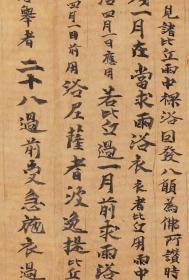 見諸比丘雨中裸浴因發八願為佛所讚時
一月在當求雨浴衣衣者比丘用雨中
四月一日應用若比丘過一月前求雨浴
四月一日前用浴尼薩耆波逸提比丘
舉者二十八過前受急施衣過